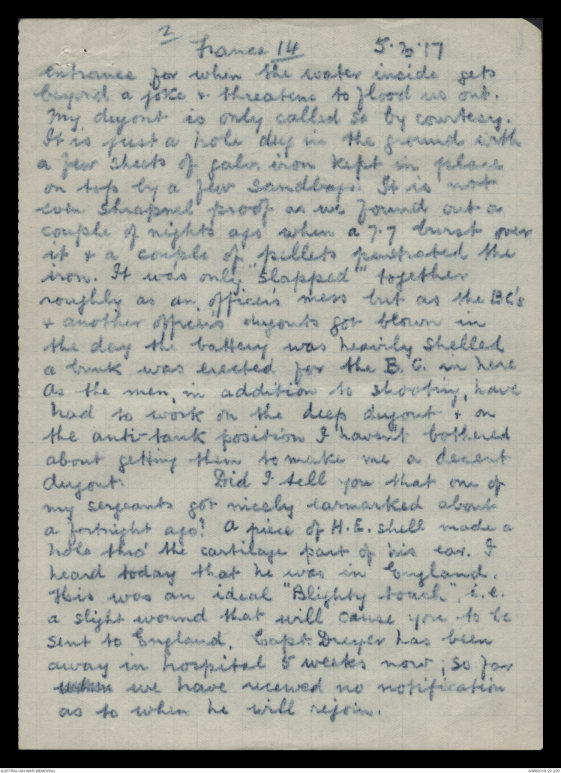 2
France 14 5.3.17
entrance for when the water inside gets
beyond a joke & threatens to flood us out.
My dugout is only called so by courtesy.
It is just a hole dug in the ground with
a few sheets of galv. iron kept in place
on top by a few sandbags. It is not
even shrapnel proof as we found out a
couple of nights ago when a 7.7 burst over
it & a couple of pellets penetrated the
iron. It was only "slapped" together
roughly as an officer's mess but as the BC's
& another officer's dugouts got blown in
the day the battery was heavily shelled
a bunk was erected for the B.C. in here
As the men, in addition to shooting, have
had to work on the deep dugout & on
the anti-tank position I haven't bothered
about getting them to make me a decent
dugout. Did I tell you that one of
my sergeants got nicely earmarked about
a fortnight ago? A piece of H.E. shell made a
hole thro' the cartilage part of his ear. I
heard today that he was in England.
This was an ideal "Blighty touch", i.e.
a slight wound that will cause you to be
sent to England. Capt. Dreyer has been
away in hospital 5 weeks now; so far
we have received no notification
as to when he will rejoin.
AUSTRALIAN WAR MEMORIAL